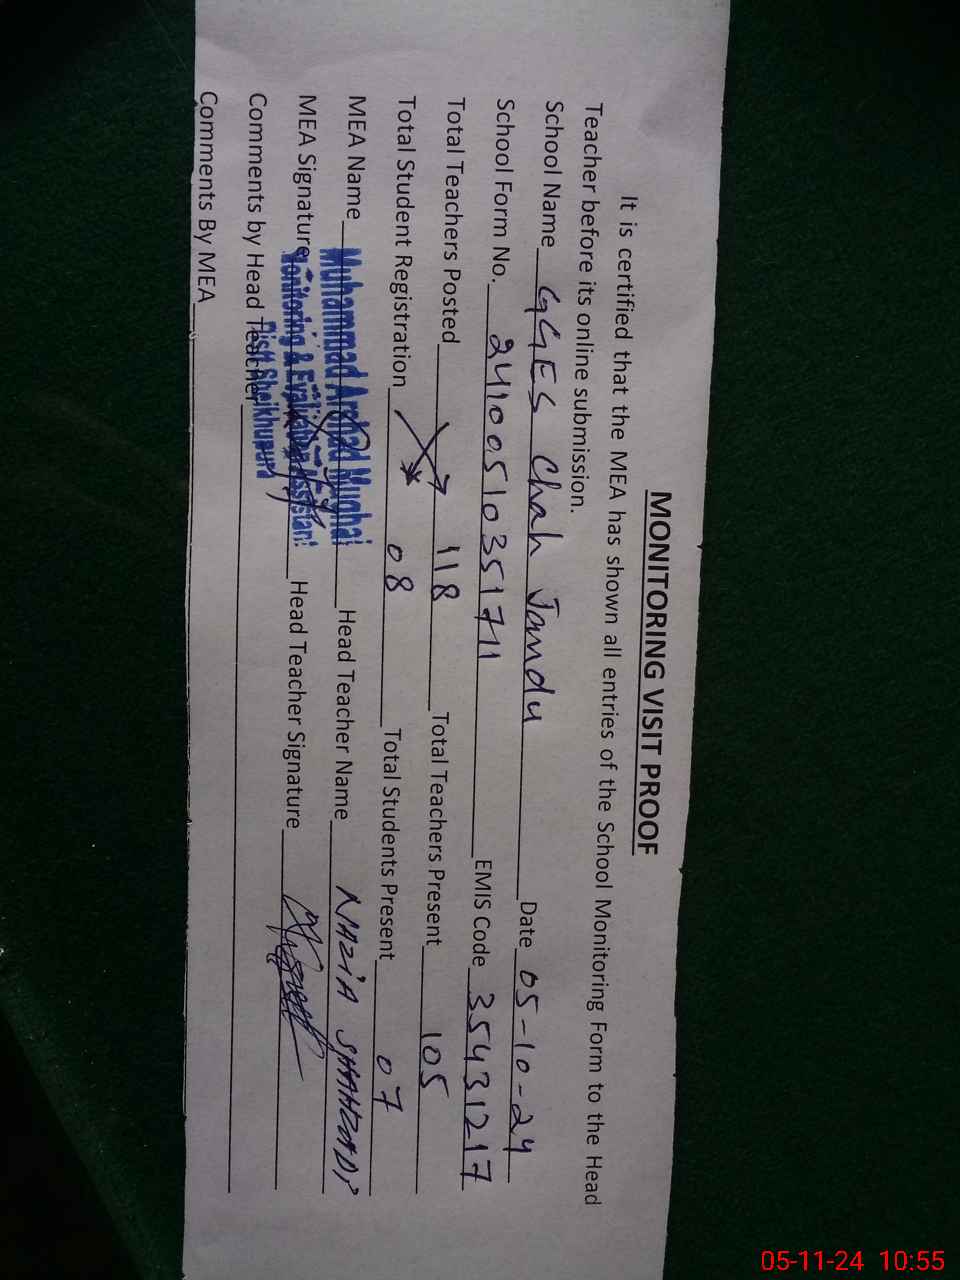 MONITORING VISIT PROOF
It is certified that the MEA has shown all entries of the School Monitoring Form to the Head
Teacher before its online submission.
School Name GGES Chah Jandu Date 05-10-24
School Form No. 24100510351711 EMIS Code 35431217
Total Teachers Posted 118 Total Teachers Present 105
Total Student Registration 08 Total Students Present 07
MEA Name Muhammad Arshad Mughal Head Teacher Name NAZIA SHAHZADI
MEA Signature Monitoring & Evaluation Assistant Head Teacher Signature
Comments by Head Teacher Distt Sheikhupura
Comments By MEA
05-11-24 10:55